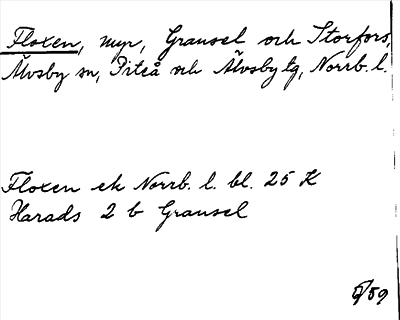 Floxen, myr, Gransel och Storfors,
Älvsby sn, Piteå och Älvsby tg, Norrb. l.
Floxen ek Norrb. l. bl. 25 K
Harads 2 b Gransel
/59